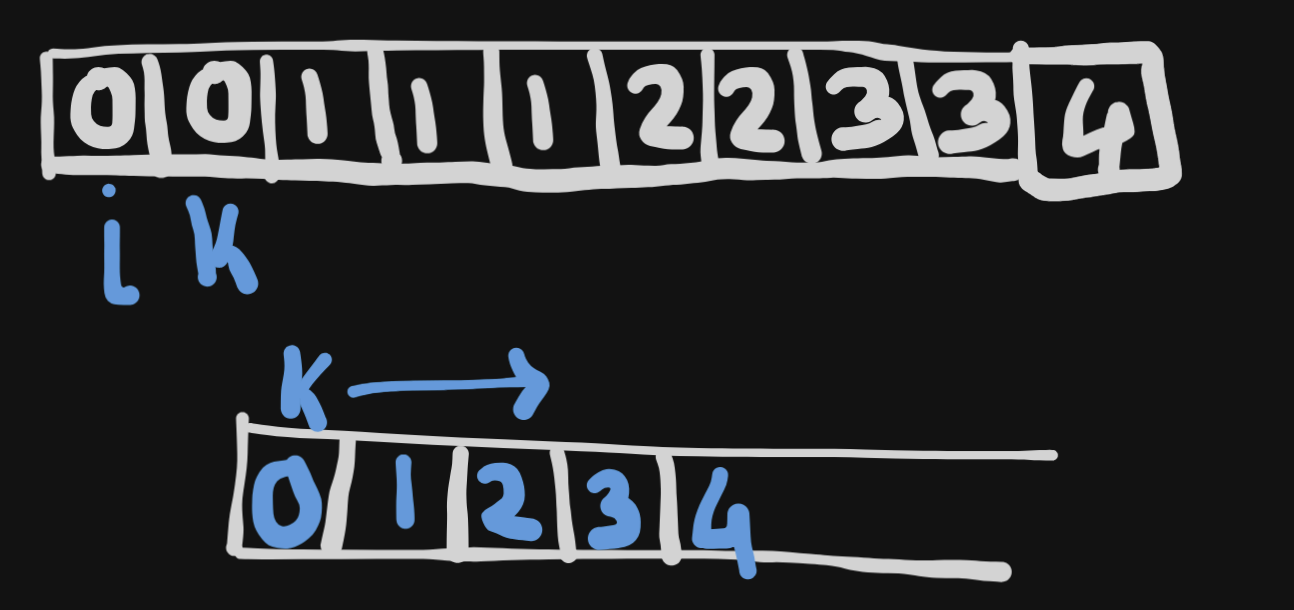 0 0 1 1 1 2 2 3 3 4
i k
k →
0 1 2 3 4